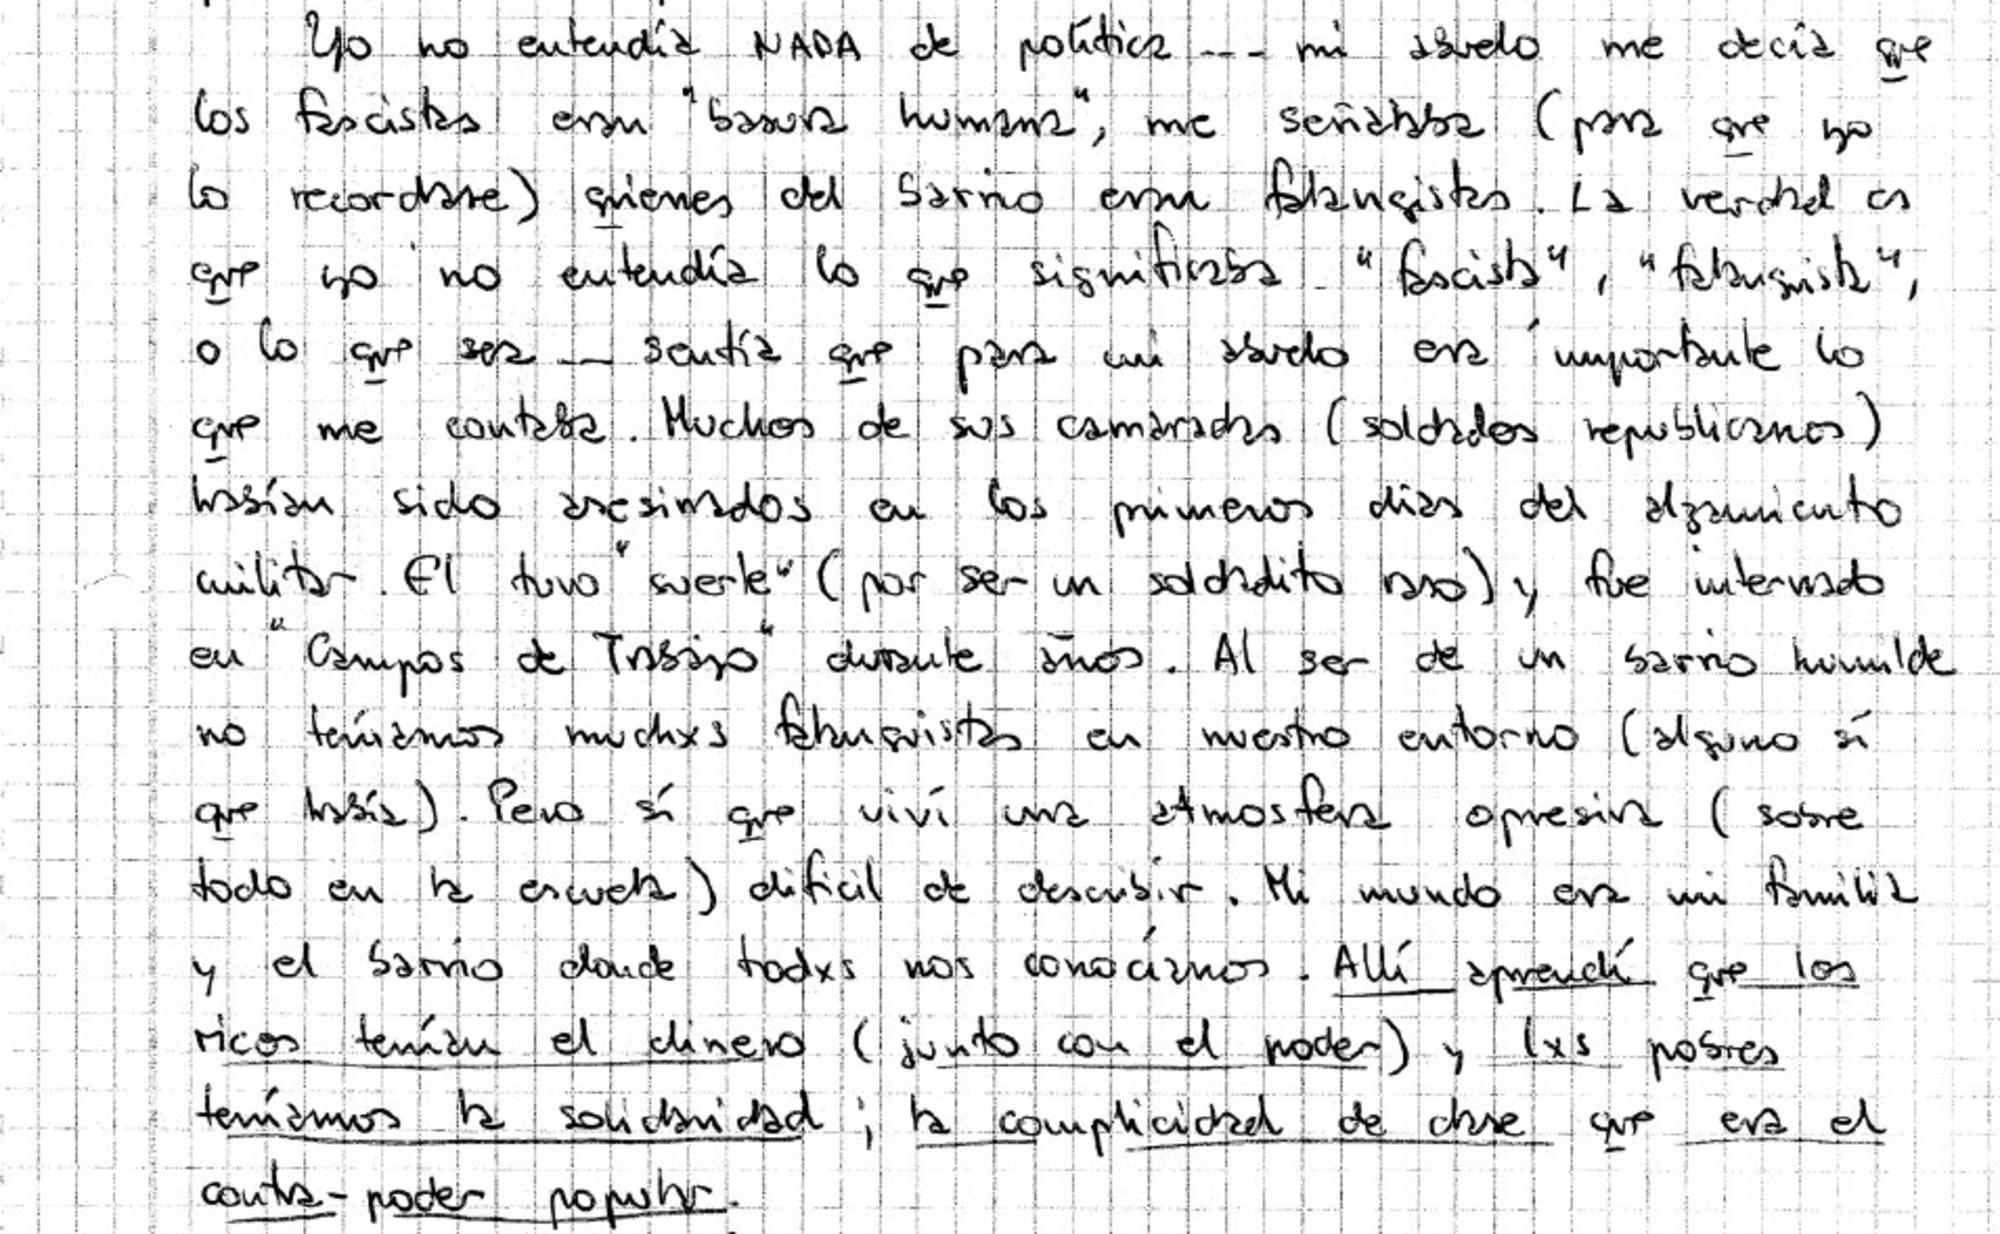 Yo no entendía NADA de política --- mi abuelo me decía que
los fascistas eran "basura humana", me señalaba (para que yo
lo recordase) quienes del barrio eran falangistas. La verdad es
que yo no entendía lo que significaba "fascista", "falangista",
o lo que sea --- sentía que para mi abuelo era importante lo
que me contaba. Muchos de sus camaradas (soldados republicanos)
habían sido asesinados en los primeros días del alzamiento
militar. El tuvo "suerte" (por ser un soldadito raso) y fue internado
en "Campos de Trabajo" durante años. Al ser de un barrio humilde
no teníamos muchxs falangistas en nuestro entorno (alguno sí
que había). Pero sí que viví una atmosfera opresiva (sobre
todo en la escuela) dificil de describir. Mi mundo era mi familia
y el barrio donde todxs nos conocíamos. Allí aprendí que los
ricos tenían el dinero (junto con el poder) y lxs pobres
teníamos la solidaridad; la complicidad de clase que era el
contra-poder popular.